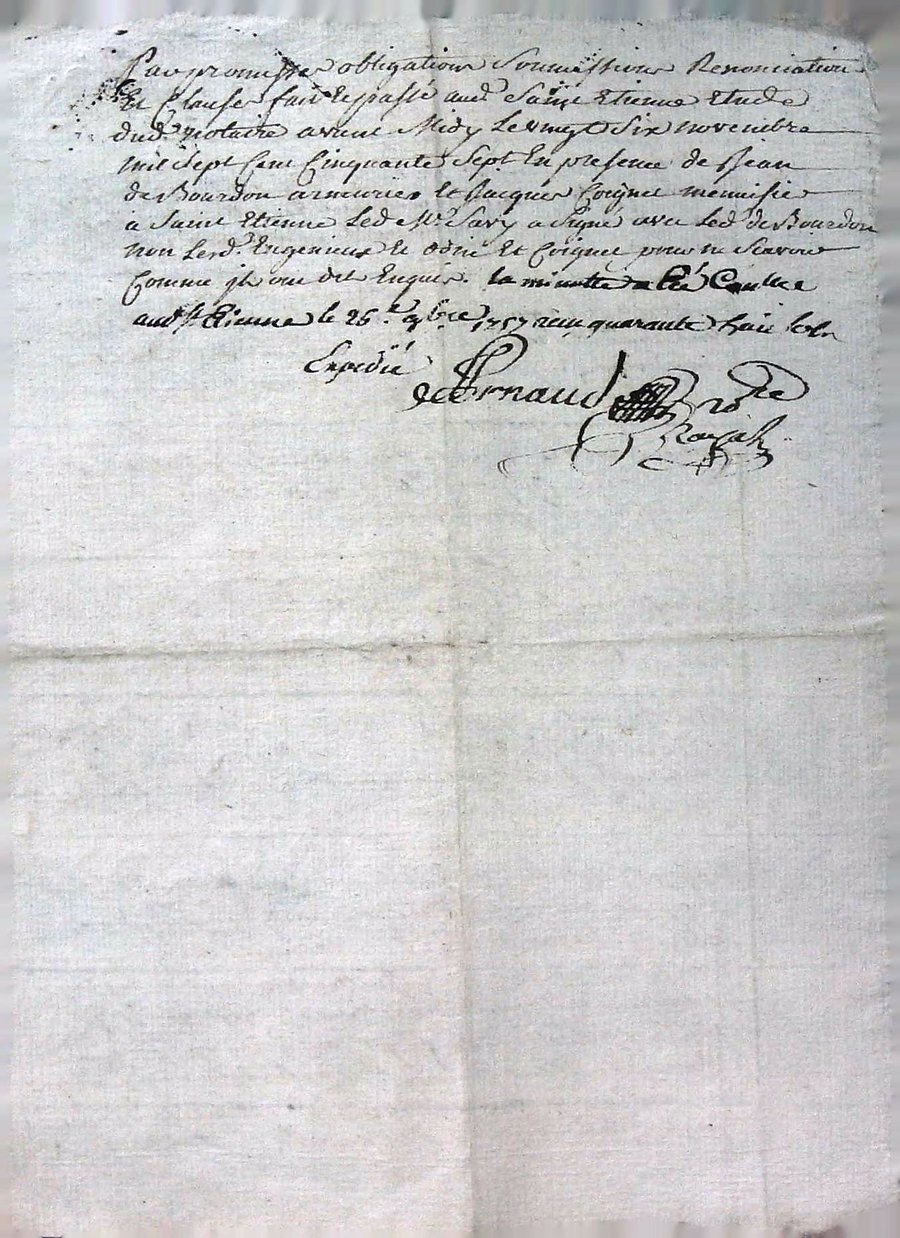 Par promesses obligations Soumissions Renonciation
Et Clauses fait Et passé aud. Saint Etienne Etude
dud. notaire avant Midy Le vingt Six novembre
mil Sept Cent Cinquante Sept En presence de Jean
de Bourdon armurier Et Jacques Coignet menuisier
à Saint Etienne Led. Mr. Savy a Signé avec Led. de Bourdon
non Lesd. Et Et Coignet pour ne Scavoir
Comme ils ont dit Enquis. la minutte a été Conllee
aud. St. Etienne le 26e. 9bre 1757 reçu quarante huit sols
Expedié
Arnaud
Royal